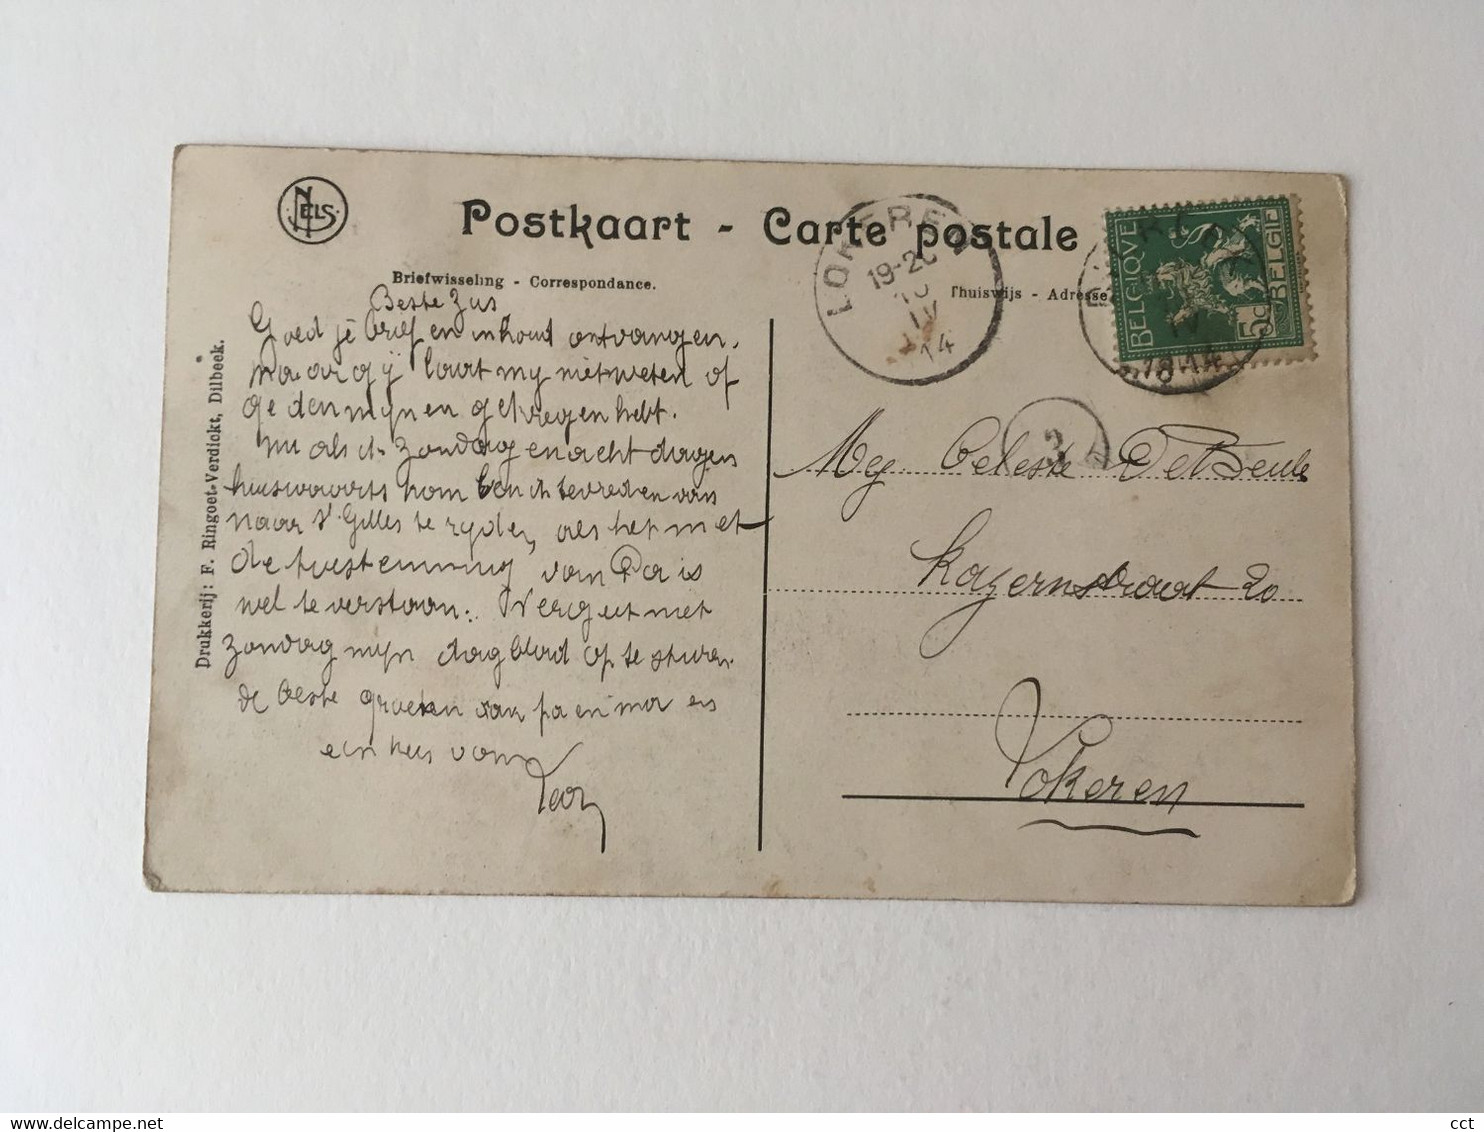 NELS
Postkaart - Carte postale
Briefwisseling - Correspondance.
Thuiswijs - Adresse
Drukkerij: F. Ringoet-Verdickt, Dilbeek.
LOKEREN
19-20
10
IV
14
BELGIQUE
BELGIË
5c
3
Beste Zus
Goed je brief en inhoud ontvangen,
maar gij laat my niet weten of
ge den mynen gekregen hebt.
Nu als ik zondag en acht dagen
huiswaarts kom ben ik tevreden van
naar St. Gilles te ryden, als het met
de toestemming van Pa is
wel te verstaan. Vergeet niet
zondag myn dagblad op te sturen
de beste groeten aan pa en ma en
een kus van
Mej Celeste De
Kazernstraat 20
Lokeren
cct
delcampe.net